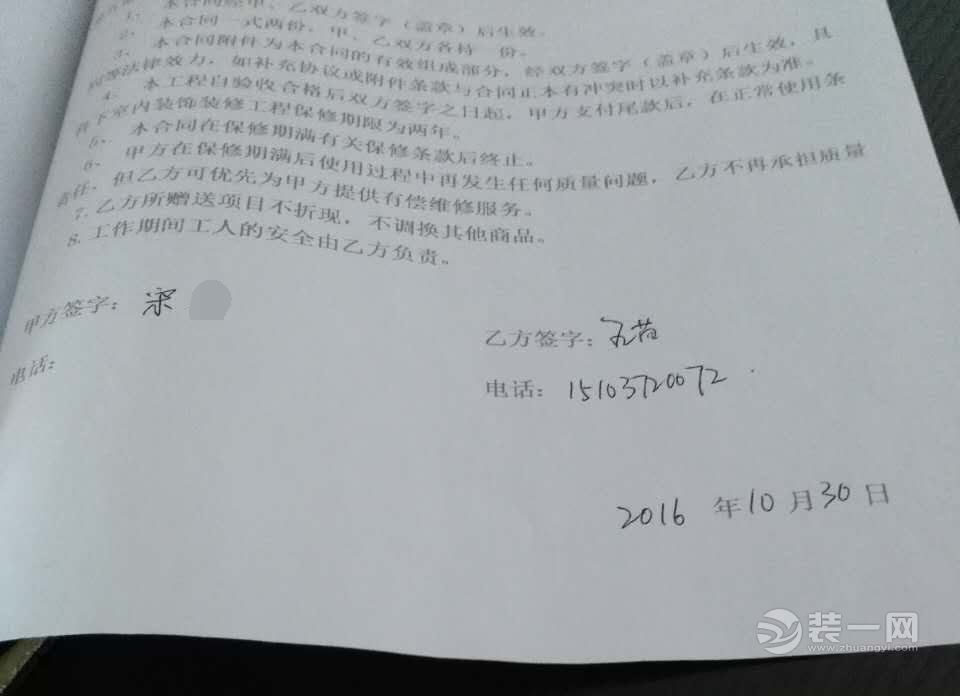 1、本合同经甲、乙双方签字（盖章）后生效。
2、本合同一式两份，甲、乙双方各持 份。
3、本合同附件为本合同的有效组成部分，经双方签字（盖章）后生效，具
同等法律效力，如补充协议或附件条款与合同正本有冲突时以补充条款为准。
4、本工程自验收合格后双方签字之日起，甲方支付尾款后，在正常使用条
件下室内装饰装修工程保修期限为两年。
5、本合同在保修期满有关保修条款后终止。
6、甲方在保修期满后使用过程中再发生任何质量问题，乙方不再承担质量
责任，但乙方可优先为甲方提供有偿维修服务。
7.乙方所赠送项目不折现，不调换其他商品。
8.工作期间工人的安全由乙方负责。
甲方签字：宋
乙方签字：
电话：
电话：15103720072
2016 年10月30日
装一网
www.zhuangyi.com